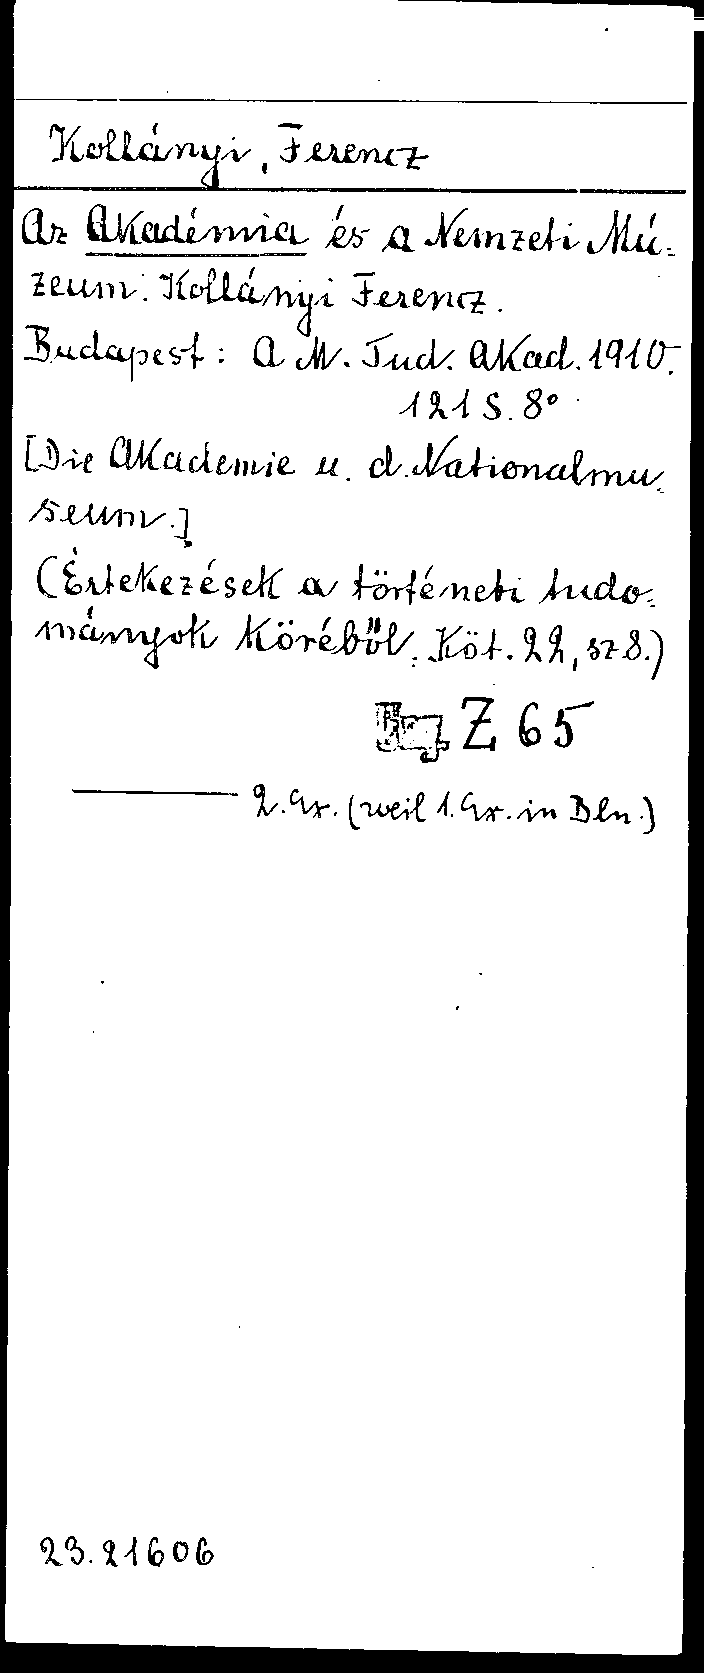 Kollányi, Ferencz
Az Akadémia és a Nemzeti Mú-
zeum. Kollányi Ferencz.
Budapest: A M. Tud. Akad. 1910.
121 S. 8°
[Die Akademie u. d. Nationalmu-
seum.]
(Értekezések a történeti tudo-
mányok köréből. Köt. 22, sz 8.)
Z 65
2. Ex. (weil 1. Ex. in Bln.)
23.21606